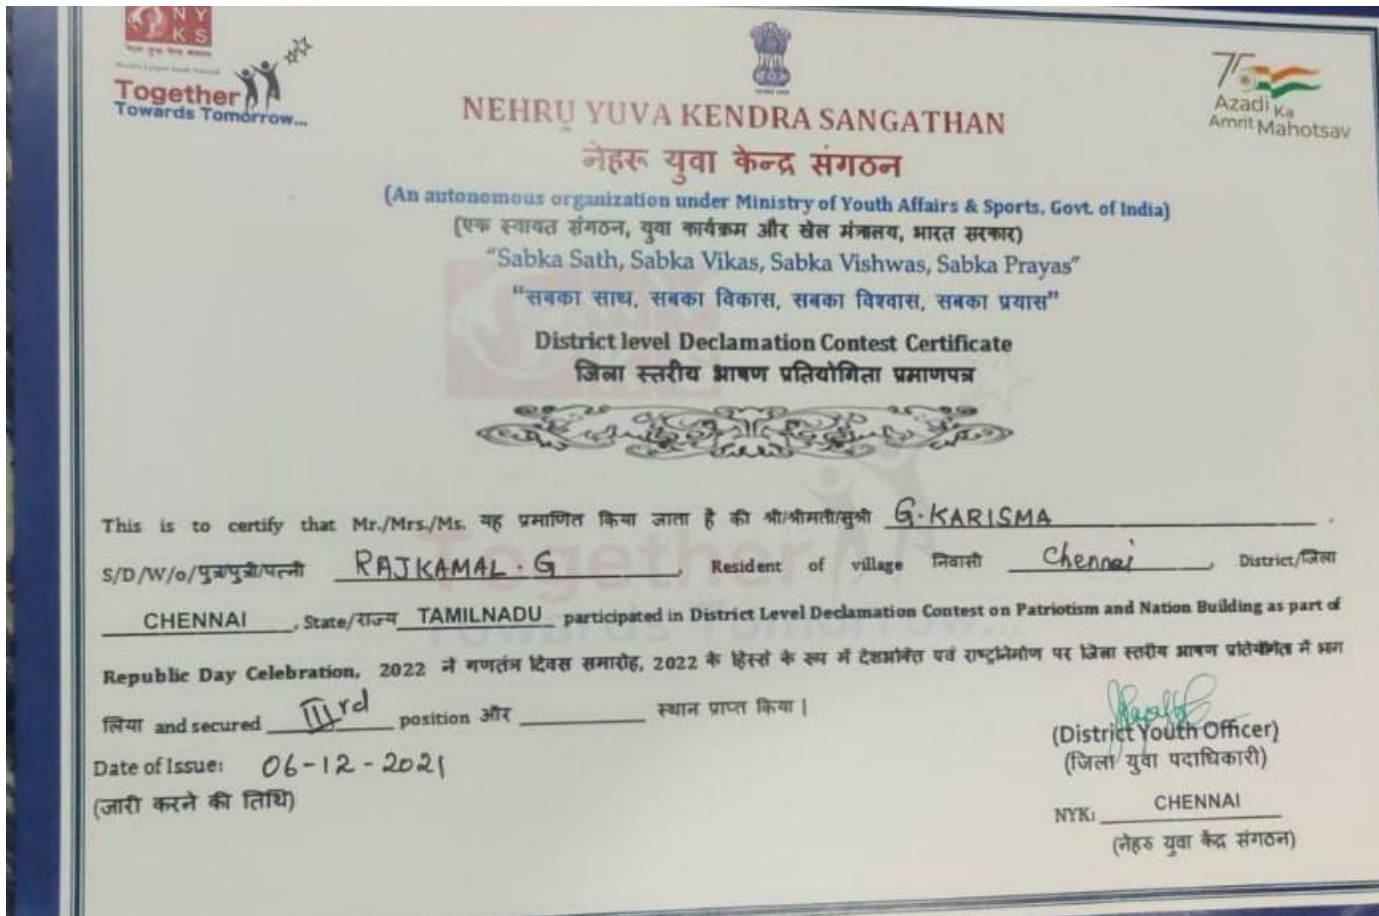 NYKS
Together
Towards Tomorrow...
75
Azadi Ka
Amrit Mahotsav
NEHRU YUVA KENDRA SANGATHAN
नेहरू युवा केन्द्र संगठन
(An autonomous organization under Ministry of Youth Affairs & Sports, Govt. of India)
(एक स्वायत संगठन, युवा कार्यक्रम और खेल मंत्रालय, भारत सरकार)
"Sabka Sath, Sabka Vikas, Sabka Vishwas, Sabka Prayas"
"सबका साथ, सबका विकास, सबका विश्वास, सबका प्रयास"
District level Declamation Contest Certificate
जिला स्तरीय भाषण प्रतियोगिता प्रमाणपत्र
This is to certify that Mr./Mrs./Ms. यह प्रमाणित किया जाता है की श्री/श्रीमती/सुश्री G.KARISMA .
S/D/W/o/पुत्र/पुत्री/पत्नी RAJKAMAL.G, Resident of village निवासी Chennai, District/जिला
CHENNAI, State/राज्य TAMILNADU participated in District Level Declamation Contest on Patriotism and Nation Building as part of
Republic Day Celebration, 2022 ने गणतंत्र दिवस समारोह, 2022 के हिस्से के रूप में देशभक्ति एवं राष्ट्रनिर्माण पर जिला स्तरीय भाषण प्रतियोगिता में भाग
लिया and secured IIIrd position और स्थान प्राप्त किया |
Date of Issue: 06-12-2021
(जारी करने की तिथि)
(District Youth Officer)
(जिला युवा पदाधिकारी)
NYK: CHENNAI
(नेहरु युवा केंद्र संगठन)